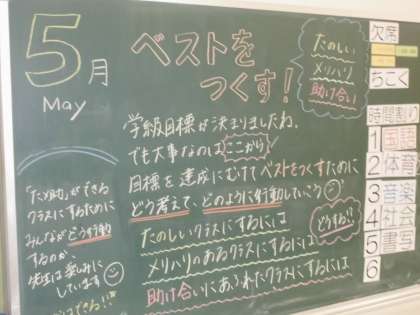 5月
May
ベストを
つくす!
たのしい
メリハリ
助け合い
学級目標が決まりましたね。
でも大事なのはここから!
目標を達成にむけてベストをつくすために
どう考えて、どのように行動していこう
どうする!?
たのしいクラスにするには
メリハリのあるクラスにするには
助け合いにあふれたクラスにするには
クラスにするために
みんながどう行動
するのか、
先生は楽しみに
しています
できる!!
欠席
ちこく
時間割り
1 国語
2 体育
3 音楽
4 社会
5 書写
6